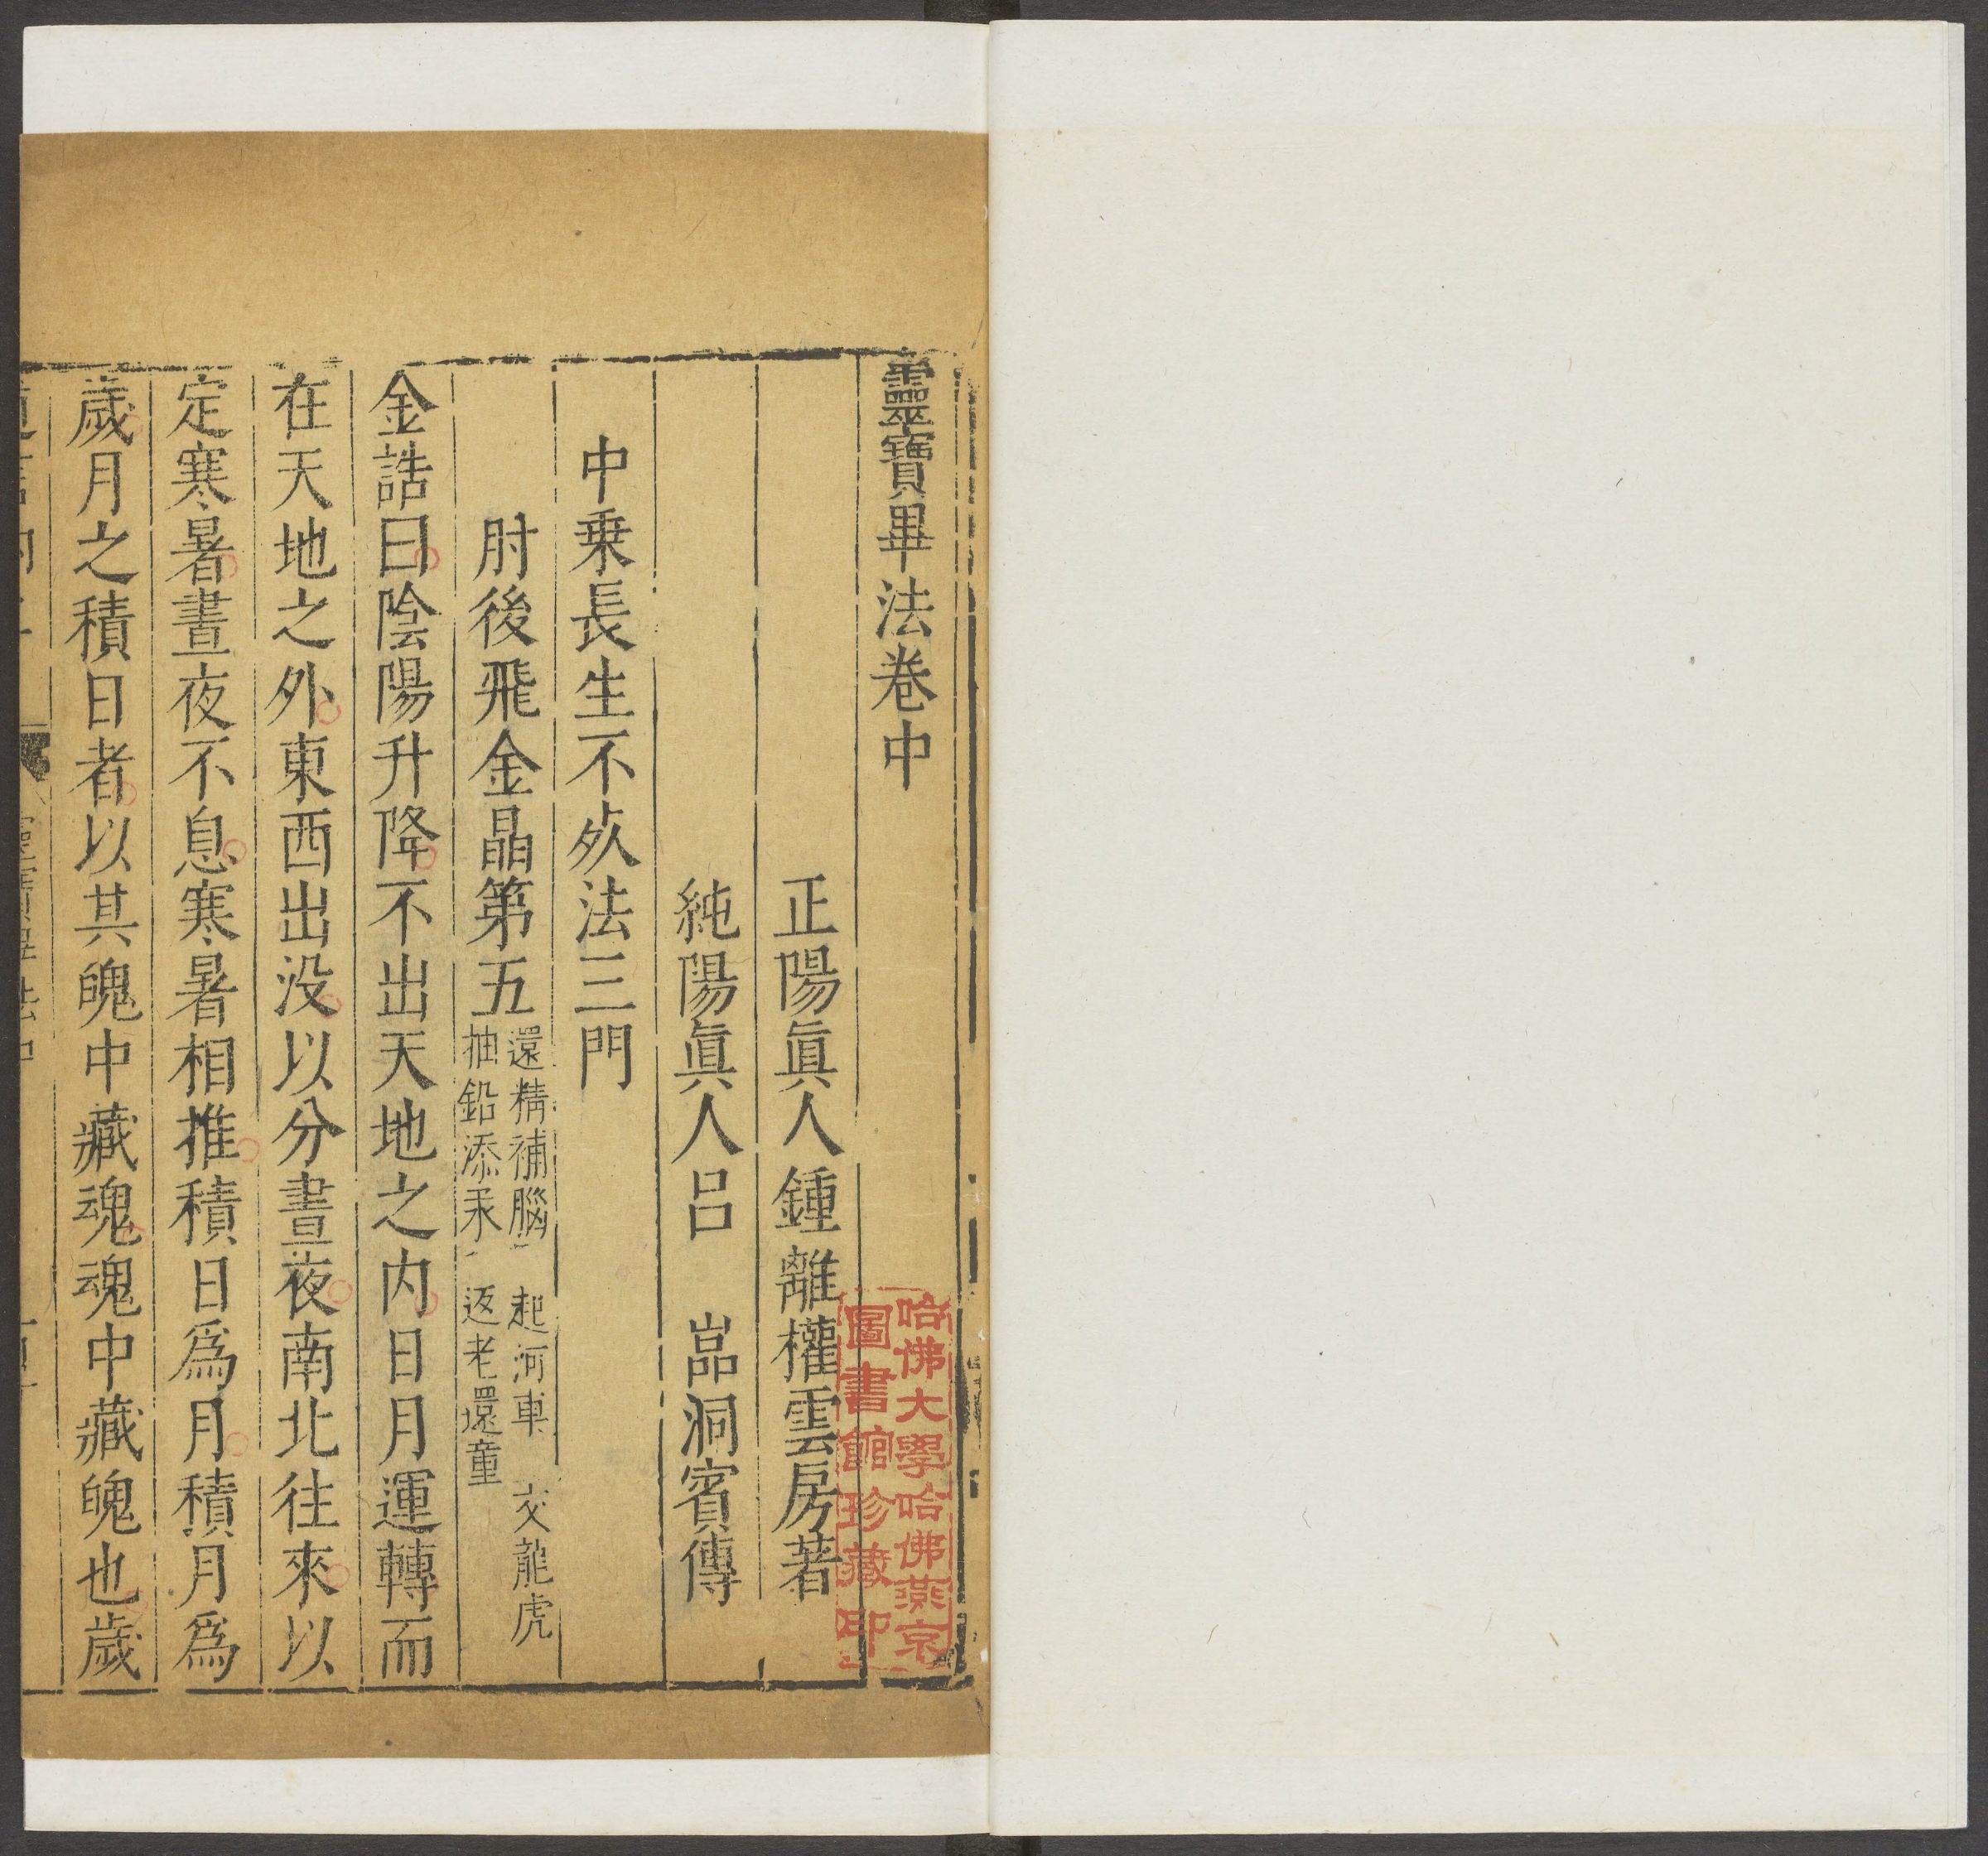 靈寶畢法卷中
正陽眞人鍾離權雲房著
純陽眞人吕　嵓洞賓傳
中乗長生不㱙法三門
肘後飛金晶第五
還精補腦　起河車　交龍虎
抽鉛添汞　返老還童
金誥曰陰陽升降不出天地之内日月運轉而
在天地之外東西出没以分晝夜南北往來以
定寒暑晝夜不息寒暑相推積日爲月積月爲
歲月之積日者以其魄中藏魂魂中藏魄也歲
哈佛大學哈佛燕京
圖書館珍藏印